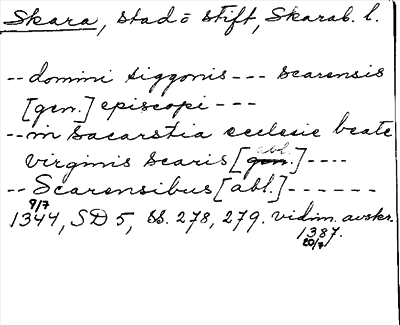 Skara, stad o stift, Skarab. l.
-- domini siggonis --- scarensis
[gen.] episcopi ---
-- in sacarstia ecclesie beate
virginis scaris [gen.] abl. ----
-- Scarensibus [abl.] ------
9/7 1344, SD 5, ss. 278, 279. vidim. avskr.
20/7 1387.